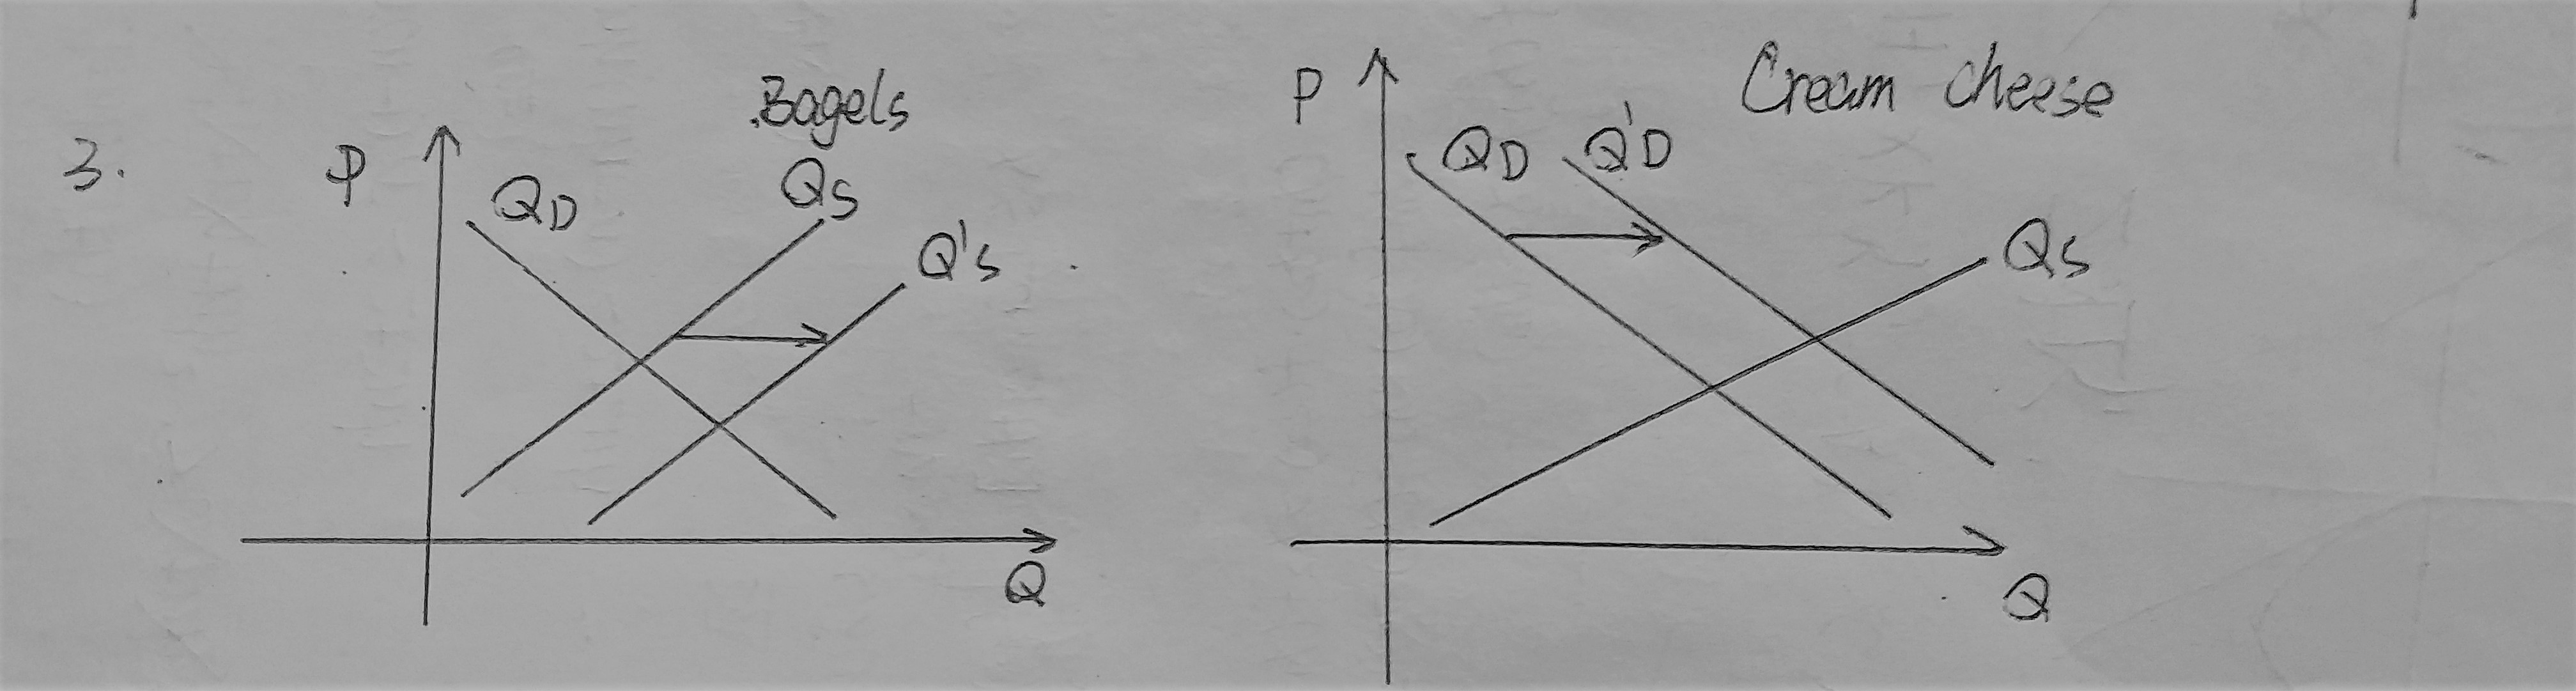 3.
Bagels
P
QD
QS
Q'S
Q
Cream cheese
P
QD
Q'D
QS
Q